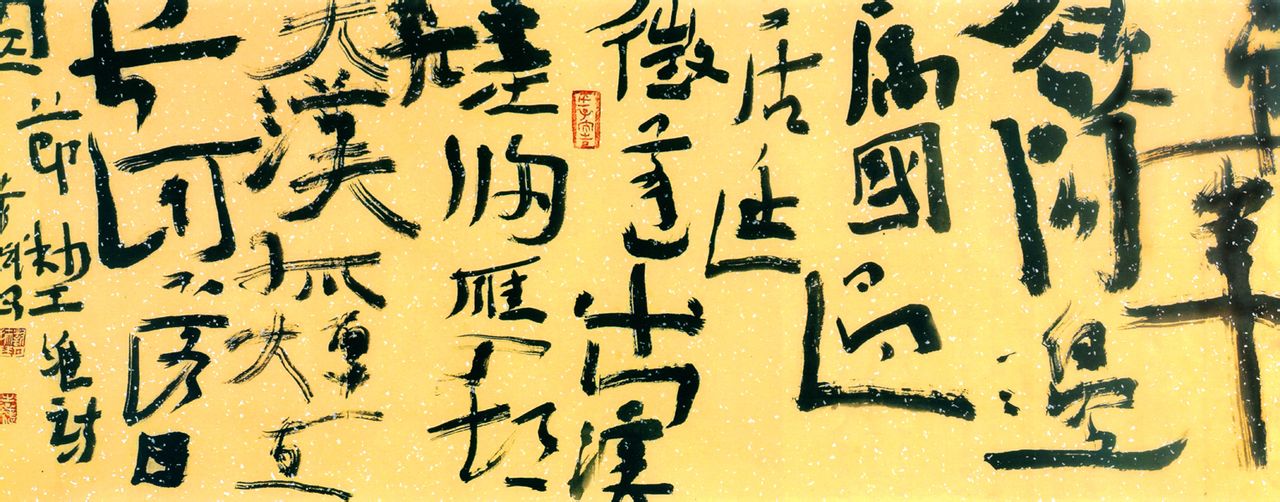 單車
欲問邊
屬國過
居延
徵蓬出漢
塞歸雁入胡
天
大漠孤煙直
長河落日
圓
節勅王維詩